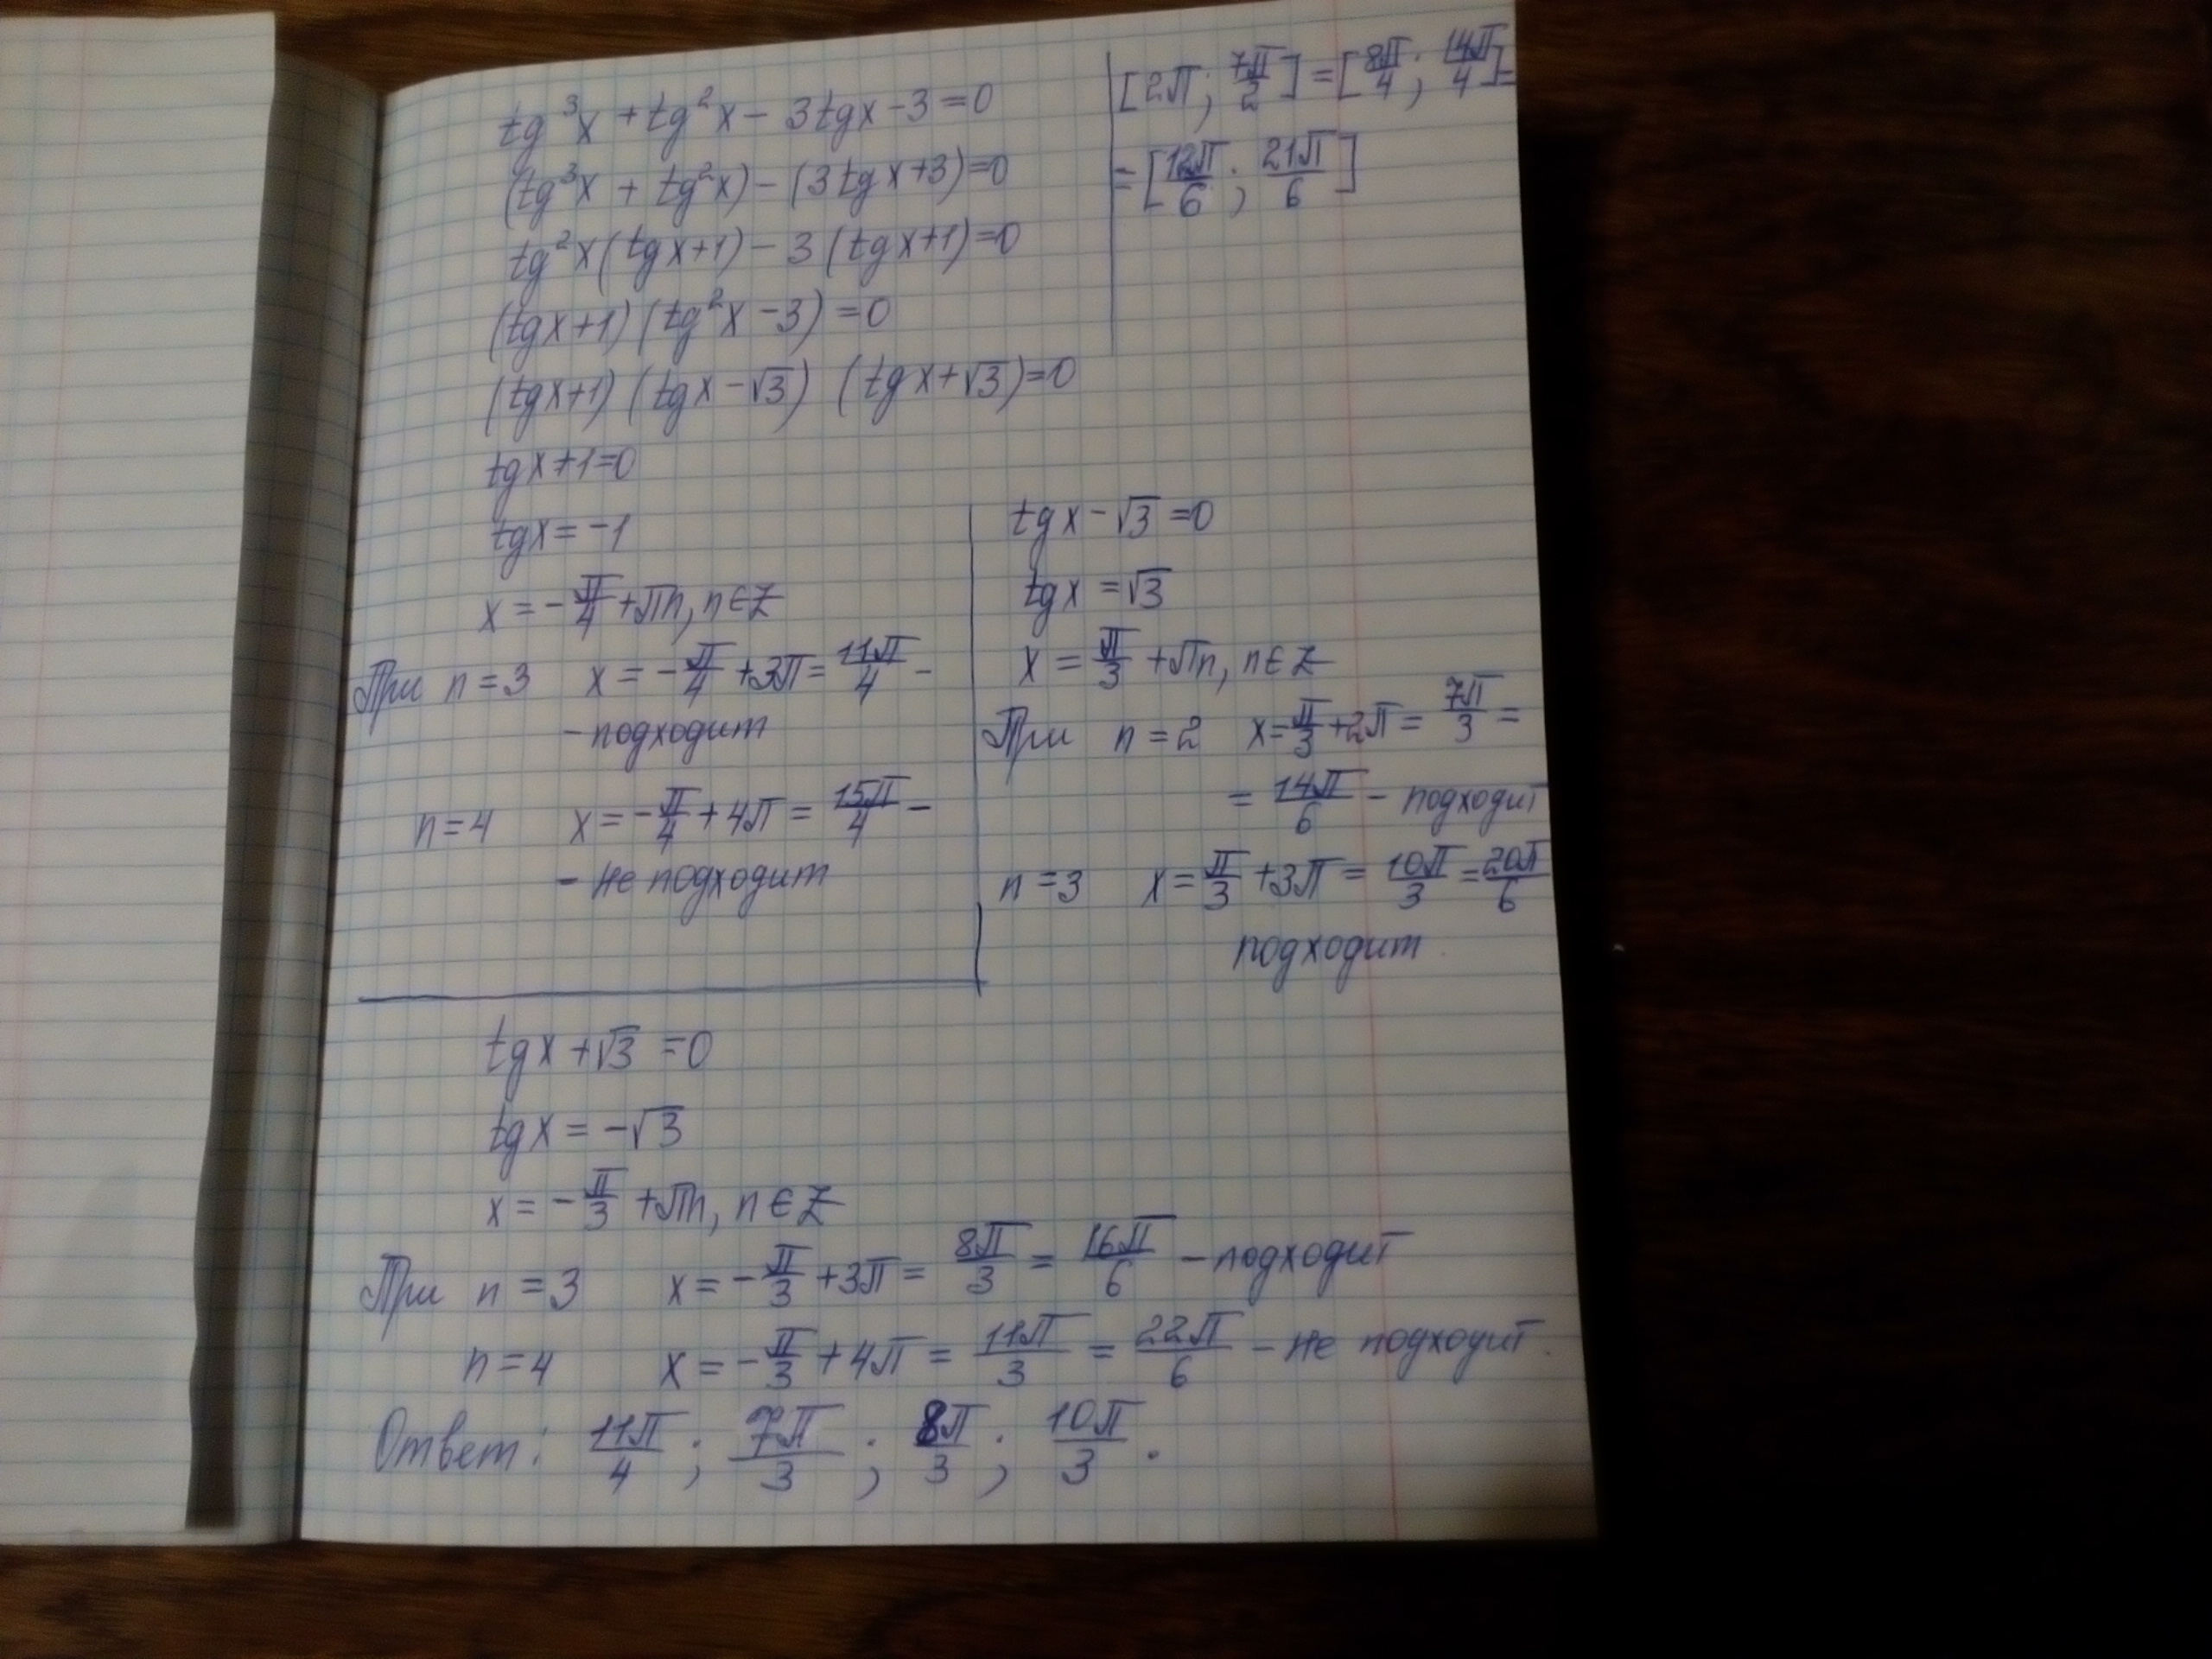 tg³x + tg²x - 3tgx - 3 = 0
(tg³x + tg²x) - (3tgx+3) = 0
tg²x(tgx+1) - 3(tgx+1) = 0
(tgx+1)(tg²x - 3) = 0
(tgx+1)(tgx - √3)(tgx+√3) = 0
[2π; 7π/2] = [8π/4; 14π/4] =
= [12π/6; 21π/6]
tgx+1=0
tgx = -1
x = -π/4 + πn, n∈Z
При n=3 x = -π/4 + 3π = 11π/4 -
- подходит
n=4 x = -π/4 + 4π = 15π/4 -
- не подходит
tgx - √3 = 0
tgx = √3
x = π/3 + πn, n∈Z
При n=2 x = π/3 + 2π = 7π/3 =
= 14π/6 - подходит
n=3 x = π/3 + 3π = 10π/3 = 20π/6
подходит.
tgx + √3 = 0
tgx = -√3
x = -π/3 + πn, n∈Z
При n=3 x = -π/3 + 3π = 8π/3 = 16π/6 - подходит
n=4 x = -π/3 + 4π = 11π/3 = 22π/6 - не подходит.
Ответ: 11π/4; 7π/3; 8π/3; 10π/3.